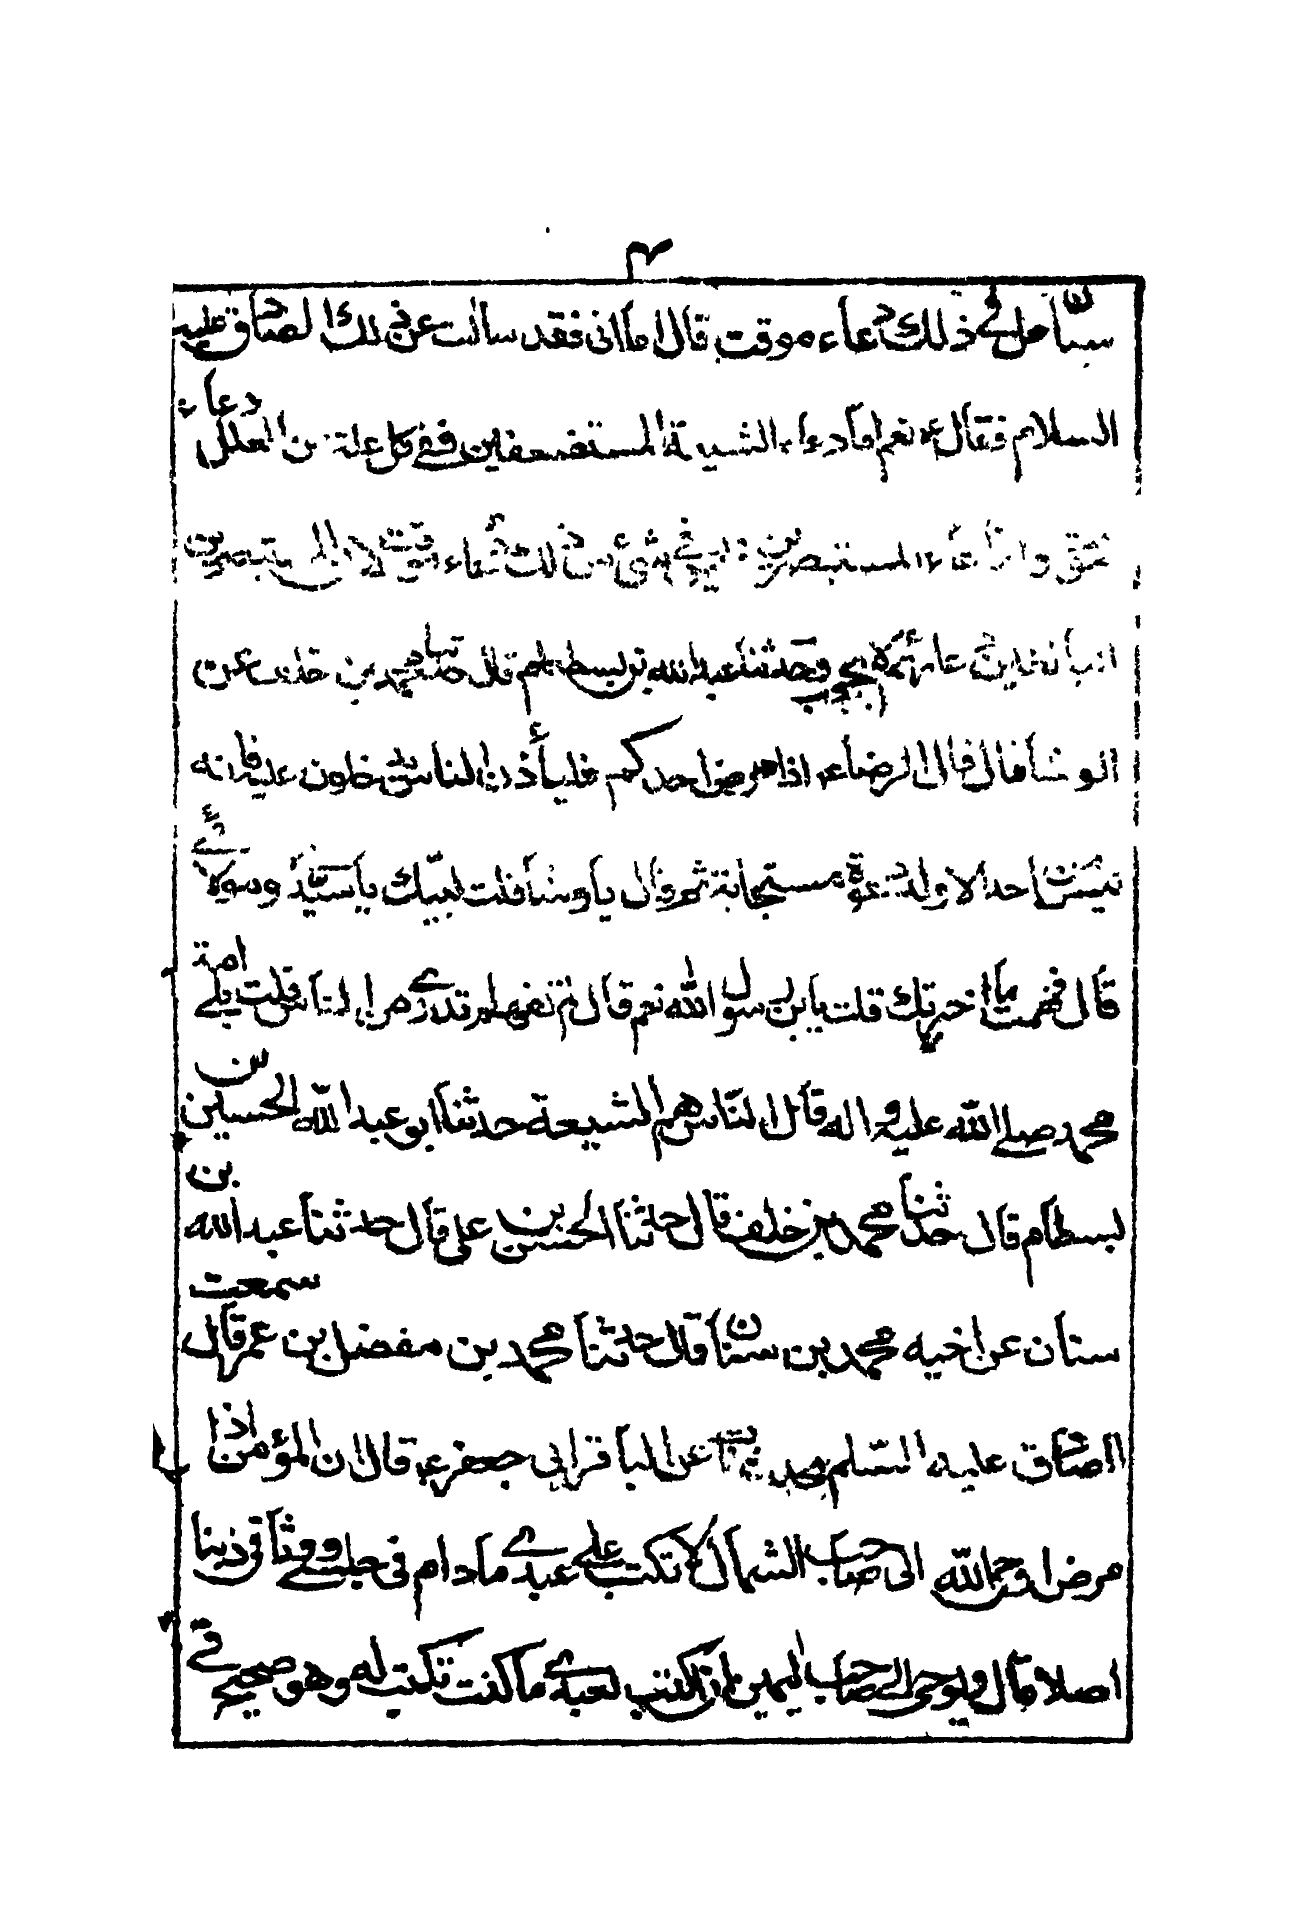 ٣
سنان هل في ذلك دعاء موقت قال اما انى فقد سالت عن ذلك الصادق عليه
السلام فقال ع نعم اما دعاء الشيعة المستضعفين ففي كل علة من العلل دعاء
موقت واما دعاء المستبصرين فليس في شئ من ذلك دعاء موقت لان المستبصرين
دعاؤهم لا يحجب وحدثنا عبد الله بن بسطام قال حدثنا محمد بن خلف عن
الوشا قال قال الرضا ع اذا مرض احدكم فليأذن الناس يدخلون عليه فانه
ليس من احد الا وله دعوة مستجابة ثم قال يا وشا قلت لبيك يا سيدي ومولائي
قال فهمت ما اخبرتك قلت يابن رسول الله نعم قال لم تفهم تدري من الناس قلت بلى امة
محمد صلى الله عليه واله قال الناس هم الشيعة حدثنا ابو عبد الله الحسين بن
بسطام قال حدثنا محمد بن خلف قال حدثنا الحسن بن علي قال حدثنا عبد الله بن
سنان عن اخيه محمد بن سنان قال حدثنا محمد بن مفضل بن عمر قال سمعت
الصادق عليه السلم يحدث عن الباقر ابي جعفر ع قال ان المؤمن اذا
مرض اوحى الله الى صاحب الشمال لا تكتب على عبدي مادام في حبسي ووثاقي ذنبا
اصلا قال ويوحى الى صاحب اليمين ان اكتب لعبدي ما كنت تكتب له وهو صحيح في